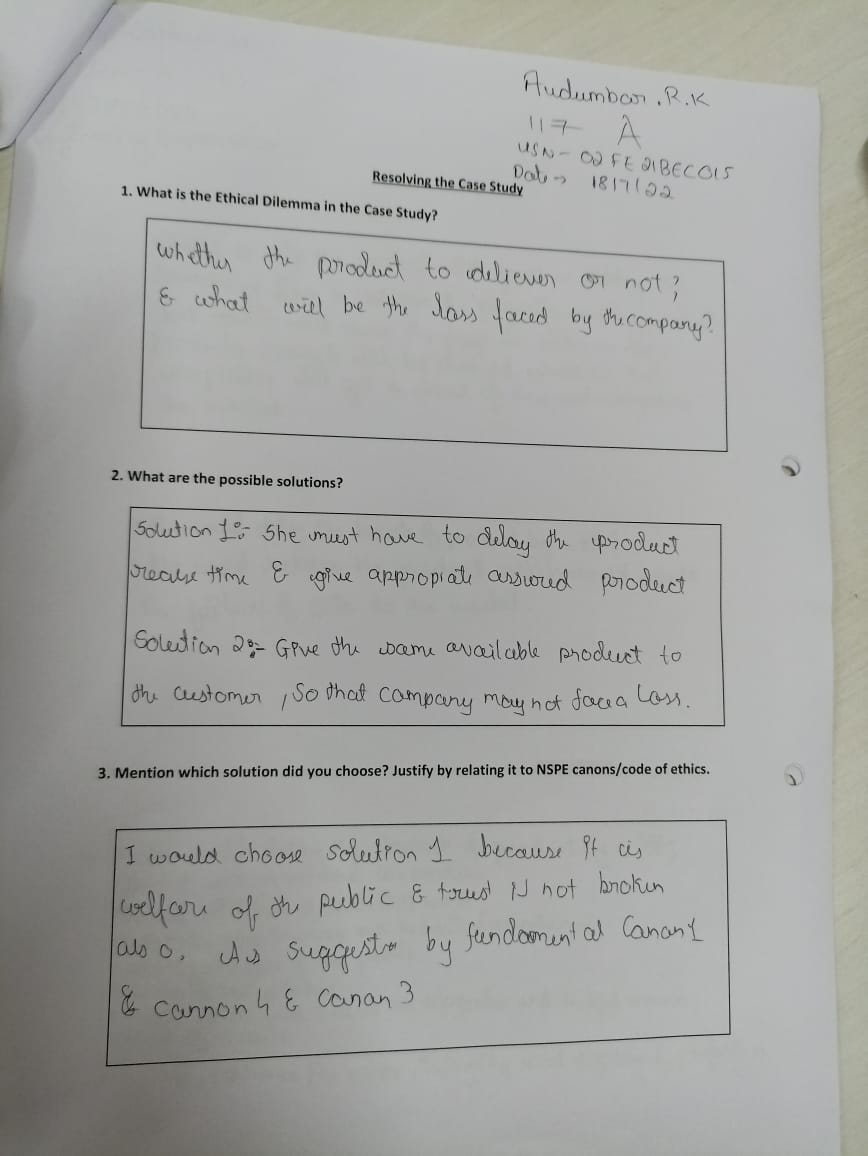 Audumbar.R.K
117 A
USN- 02FE21BEC015
Date → 18/7/22
Resolving the Case Study
1. What is the Ethical Dilemma in the Case Study?
Whether the product to deliever or not?
& what will be the loss faced by the company?
2. What are the possible solutions?
Solution 1:- She must have to delay the product
time & give appropiate assured product
Solution 2:- Give the same available product to
the customer, So that company may not face a Loss.
3. Mention which solution did you choose? Justify by relating it to NSPE canons/code of ethics.
I would choose solution 1 because it is
welfare of the public & trust is not broken
also. As suggested by fundamental Canan 1
& cannon 4 & canan 3